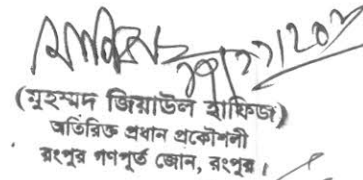 (মুহম্মদ জিয়াউল হাফিজ)
অতিরিক্ত প্রধান প্রকৌশলী
রংপুর গণপূর্ত জোন, রংপুর।